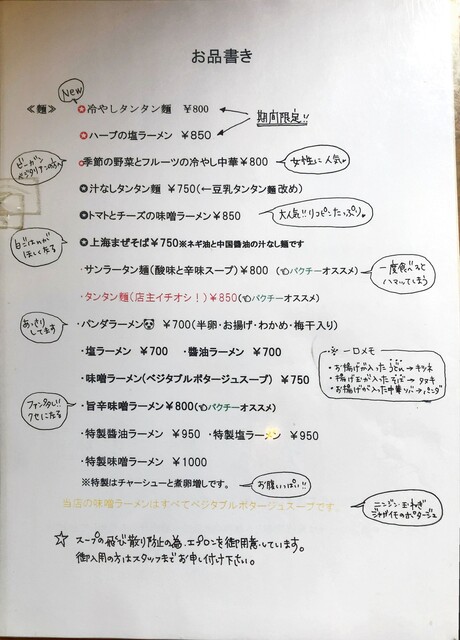 お品書き
New
≪麺≫
✪冷やしタンタン麺 ¥800
✪ハーブの塩ラーメン ¥850
期間限定!!
✪季節の野菜とフルーツの冷やし中華¥800
女性に人気
ビーガン
✪汁なしタンタン麺 ¥750(←豆乳タンタン麺 改め)
✪トマトとチーズの味噌ラーメン¥850
大人気!!リコピンたっぷり
白ごはんが
ほしくなる
✪上海まぜそば¥750※ネギ油と中国醤油の汁なし麺です
・サンラータン麺(酸味と辛味スープ)¥800 (パクチーオススメ)
一度食べると
ハマッてしまう
・タンタン麺(店主イチオシ!)¥850(パクチーオススメ)
あっさり
してます
・パンダラーメン🐼 ¥700(半卵・お揚げ・わかめ・梅干入り)
・塩ラーメン ¥700 ・醤油ラーメン ¥700
・※ 一口メモ
・お揚げが入ったうどん→キツネ
・揚げ玉が入ったそば→タヌキ
・お揚げが入った中華ソバ→パンダ
・味噌ラーメン(ベジタブルポタージュスープ) ¥750
ファンタジー!!
クセになる
・旨辛味噌ラーメン¥800(パクチーオススメ)
・特製醤油ラーメン ¥950 ・特製塩ラーメン ¥950
・特製味噌ラーメン ¥1000
※特製はチャーシューと煮卵増しです。
お腹いっぱい!!
当店の味噌ラーメンはすべてベジタブルポタージュスープです
ニンジン・玉ねぎ
ジャガイモのポタージュ
☆ スープの飛び散り防止の為、エプロンを御用意しています。
御入用の方はスタッフまでお申し付け下さい。